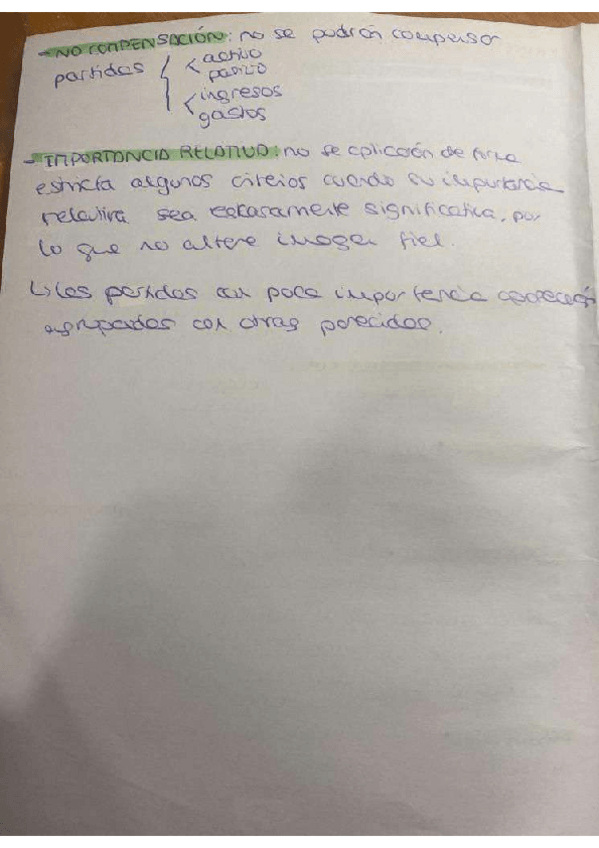 - NO COMPENSACIÓN: no se podrán compensar
partidas { < activo
pasivo
< ingresos
gastos
- IMPORTANCIA RELATIVA: no se aplicación de forma
estricta algunos criterios cuando su importancia
relativa sea escasamente significativa, por
lo que no altere imagen fiel.
↳ Las partidas con poca importancia aparecerán
agrupadas con otras parecidas.